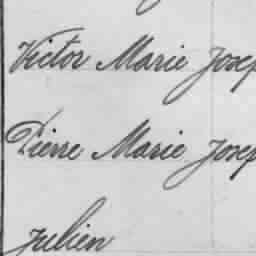 Victor Marie Josep
Pierre Marie Josep
Julien